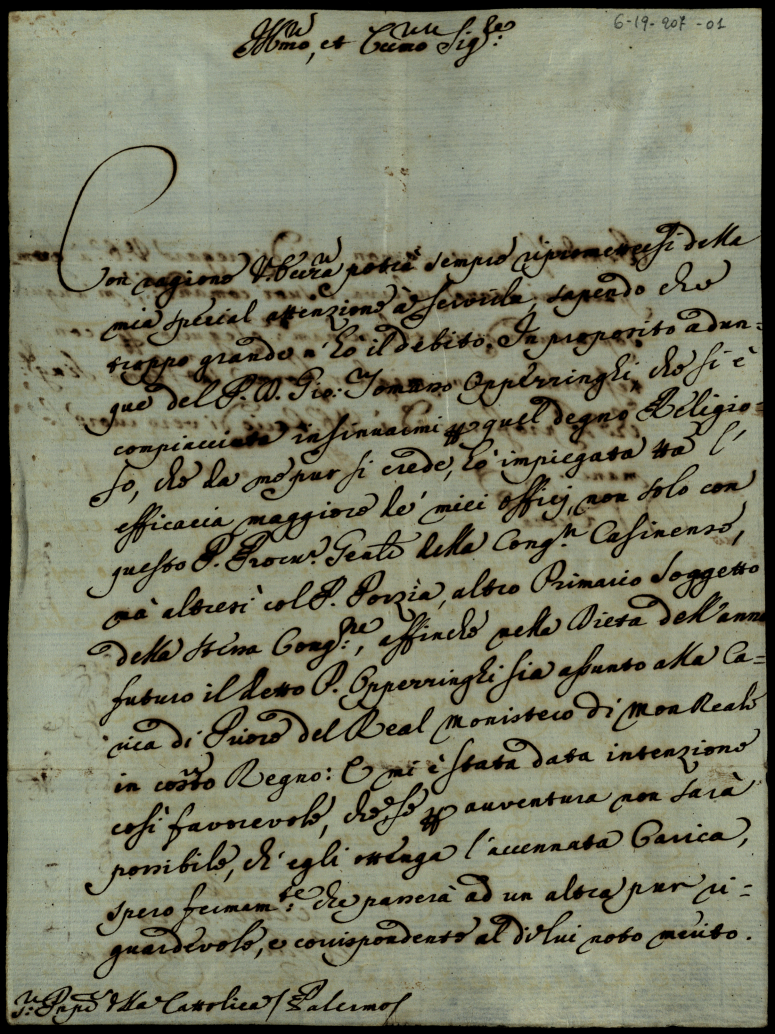 6-19-207-01
Ill.mo, et Ecc.mo Sig.re
Con ragione V. Ecc.za potrà sempre ripromettersi della
mia special attenzione à servirla, sapendo che
troppo grande n'hò il debito. In proposito adun=
que del P. D. Gio: Tommaso Opperringhi, che si è
compiacciuta insinuarmi p quel degno Religio=
so, che da me pur si crede, hò impiegata tta l'
efficacia maggiore de' miei officj, non solo con
questo P. Procu.r Genle della Cong.n Casinense,
mà altresì col P. Porzia, altro Primario Soggetto
della stessa Cong.ne, affinche nella Dieta dell'anno
futuro il detto P. Opperringhi sia assunto alla Ca=
rica di Priore del Real Monistero di Monreale
in cotto Regno: E mi è stata data intenzione
così favorevole, che se p avventura non sarà
possibile, ch'egli ottenga l'accennata Carica,
spero fermam.te che passerà ad un altra pur ri=
guardevole, e corrispondente al di lui noto merito.
Pnpe della Cattolica / Palermo /